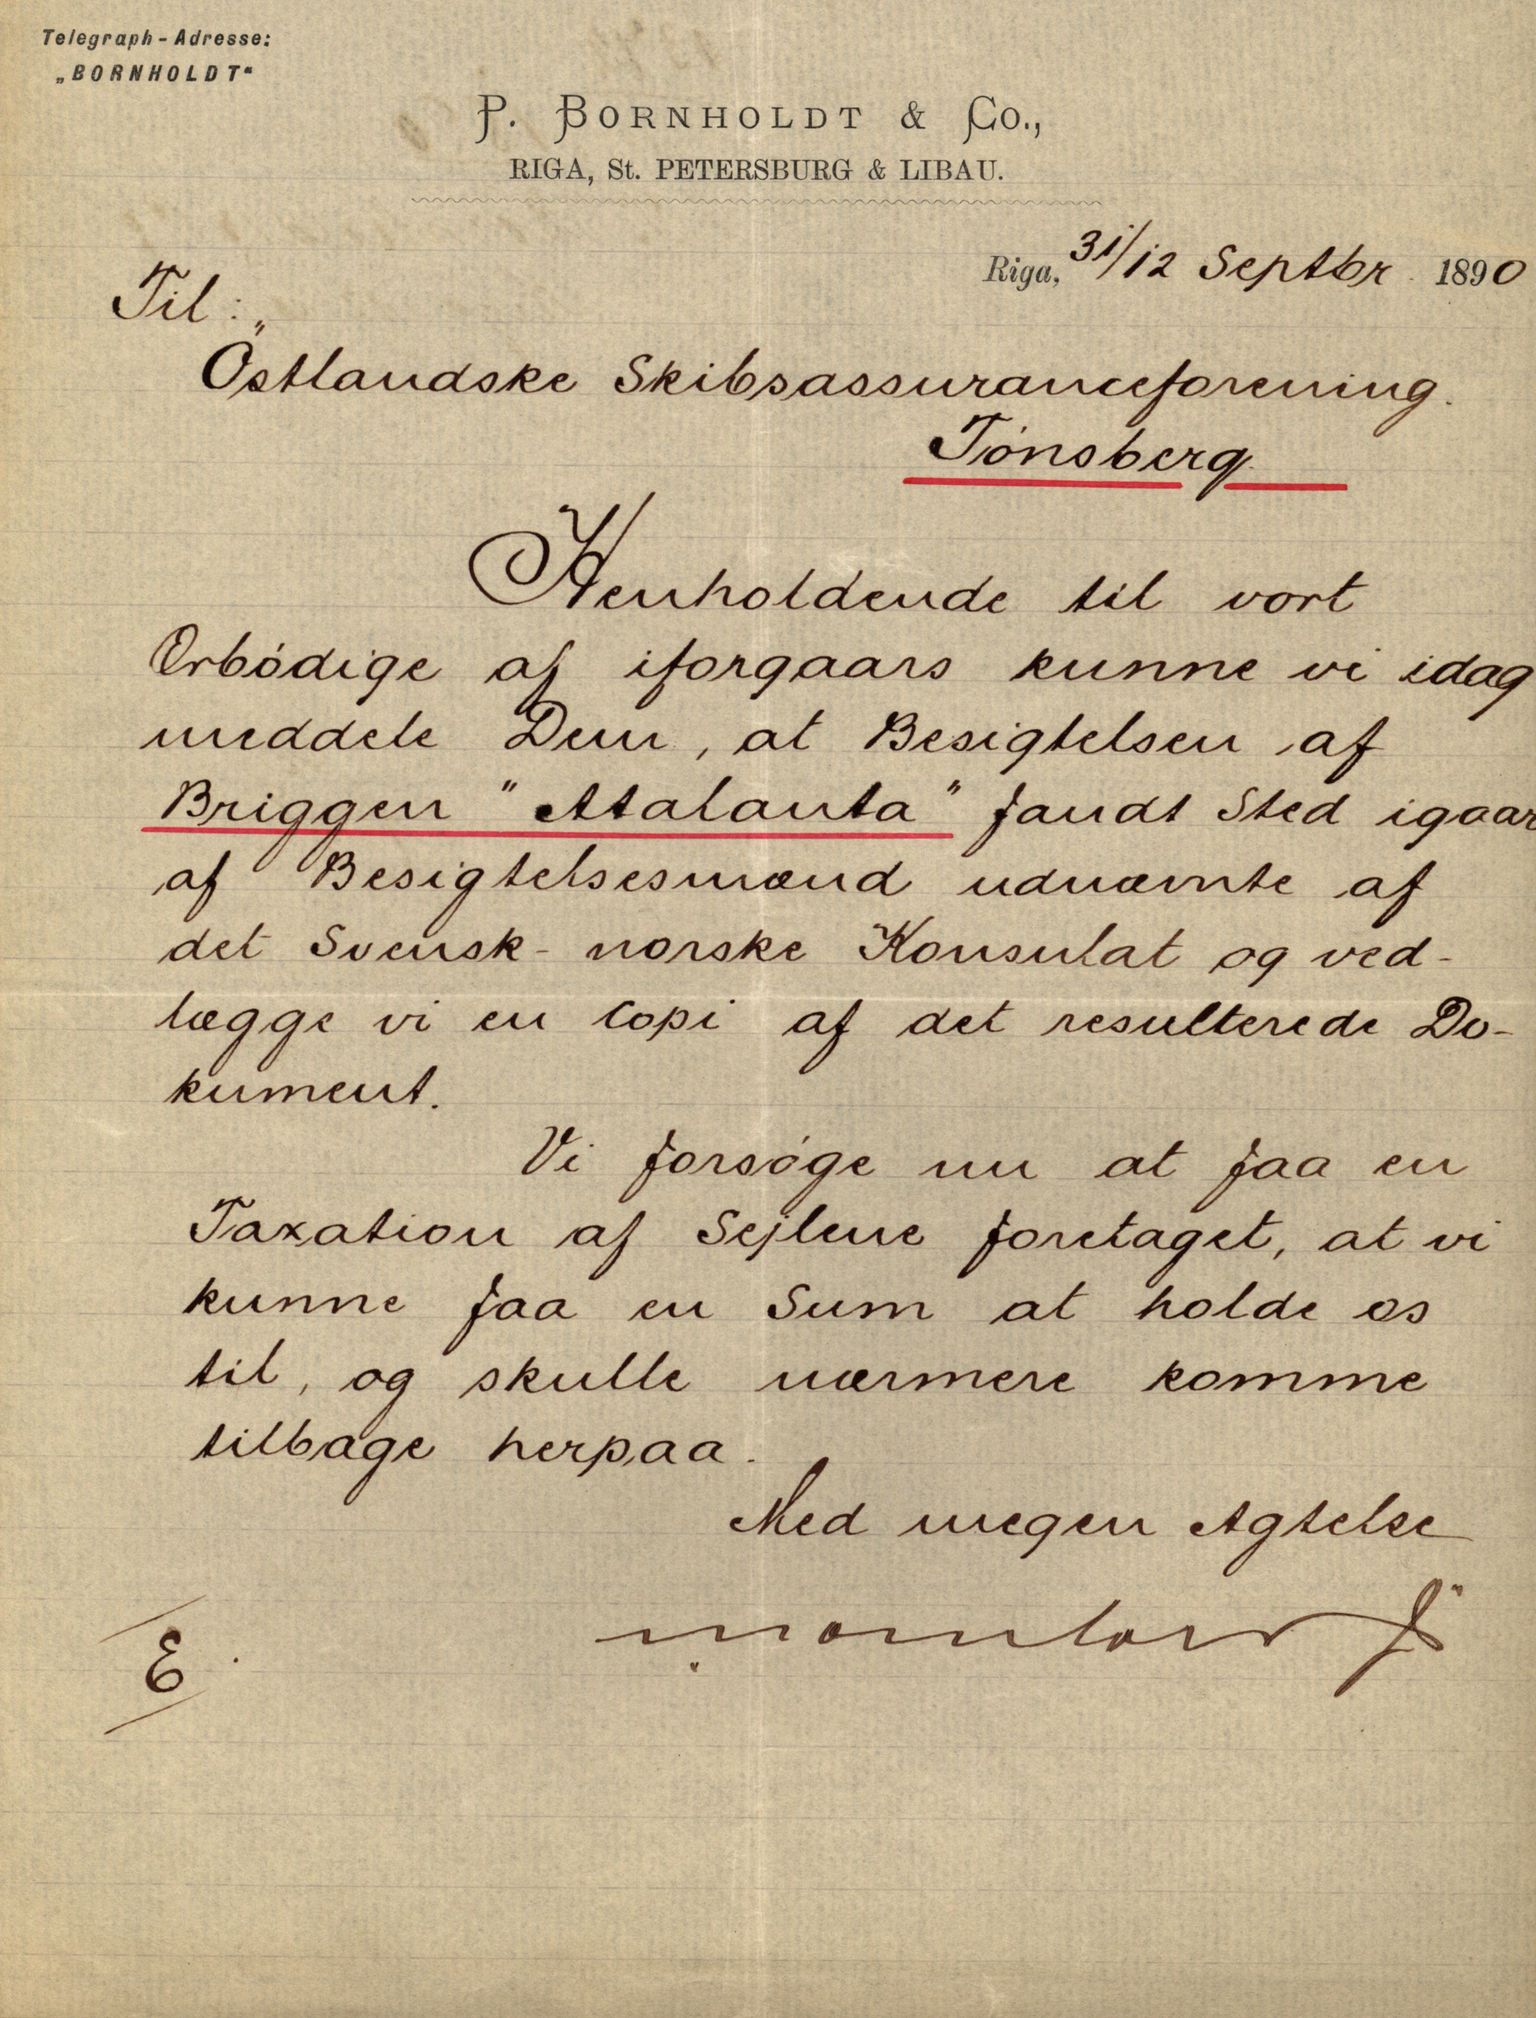 Telegraph-Adresse:
„BORNHOLDT“
P. BORNHOLDT & Co.,
RIGA, St. PETERSBURG & LIBAU.
Riga, 31/12 Septbr 1890
Til:
Östlandske Skibsassuranceforening.
Tónsberg
Henholdende til vort
Erbódige af iforgaars kunne vi idag
meddele Dem, at Besigtelsen af
Briggen "Atalanta" fandt Sted igaar
af Besigtelsesmænd udnævnte af
det Svensk-norske Konsulat og ved-
lægge vi en Copi af det resulterede Do-
kument.
Vi forsóge nu at faa en
Taxation af Sejlene foretaget, at vi
kunne faa en Sum at holde os
til, og skulle nærmere komme
tilbage herpaa.
Med megen Agtelse
E